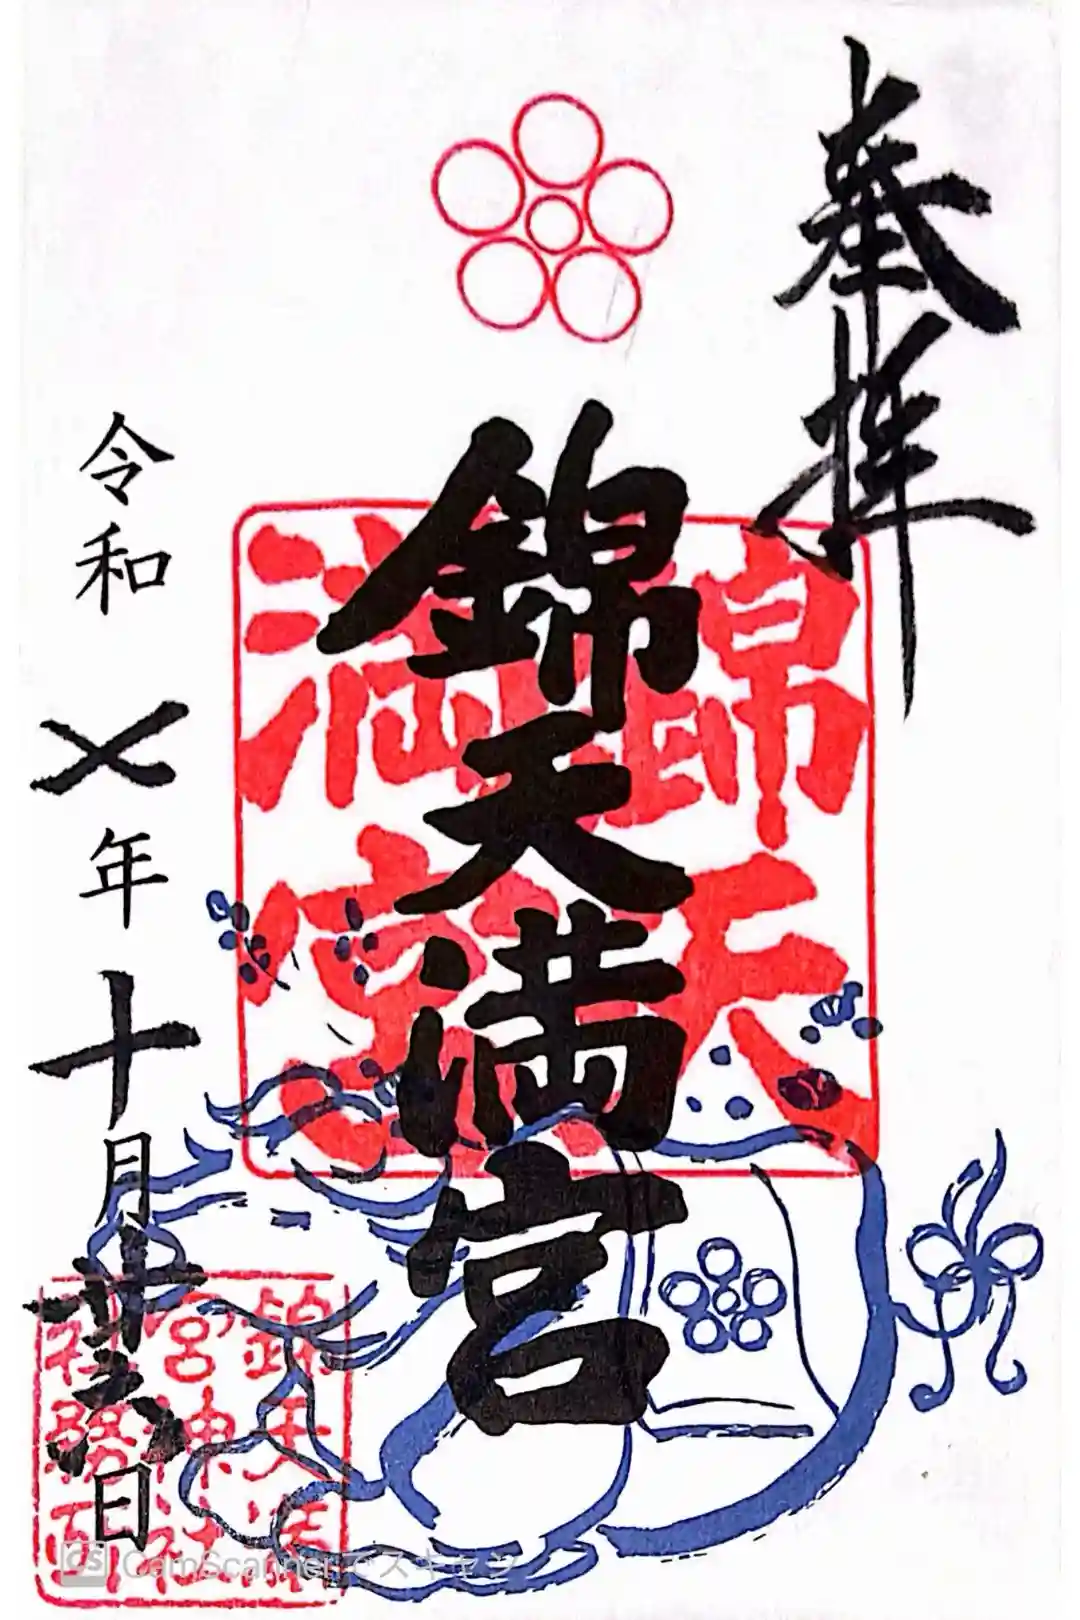 奉拝
錦天満宮
令和七年十月廿六日
錦天
満宮
錦天満
宮神社
社務所印
CS CamScannerでスキャン